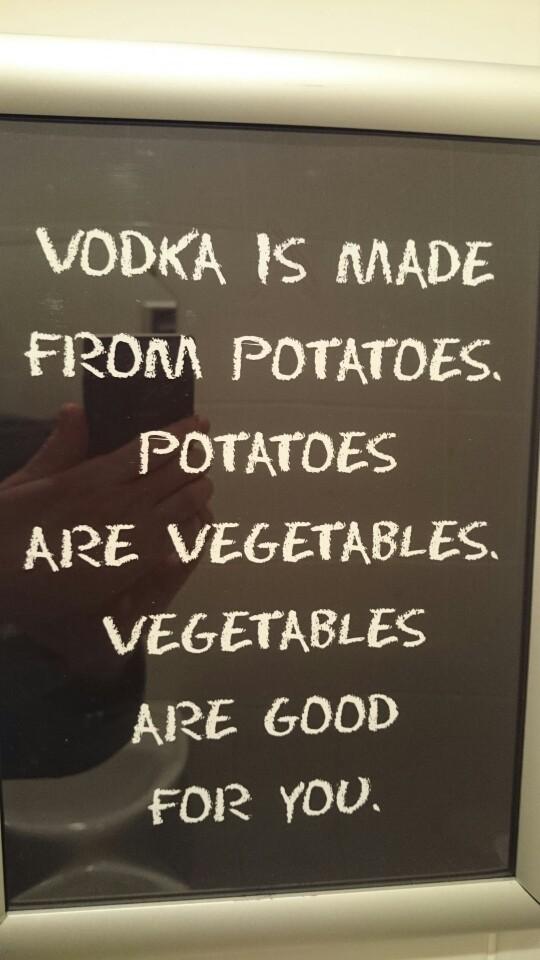 VODKA IS MADE
FROM POTATOES.
POTATOES
ARE VEGETABLES.
VEGETABLES
ARE GOOD
FOR YOU.